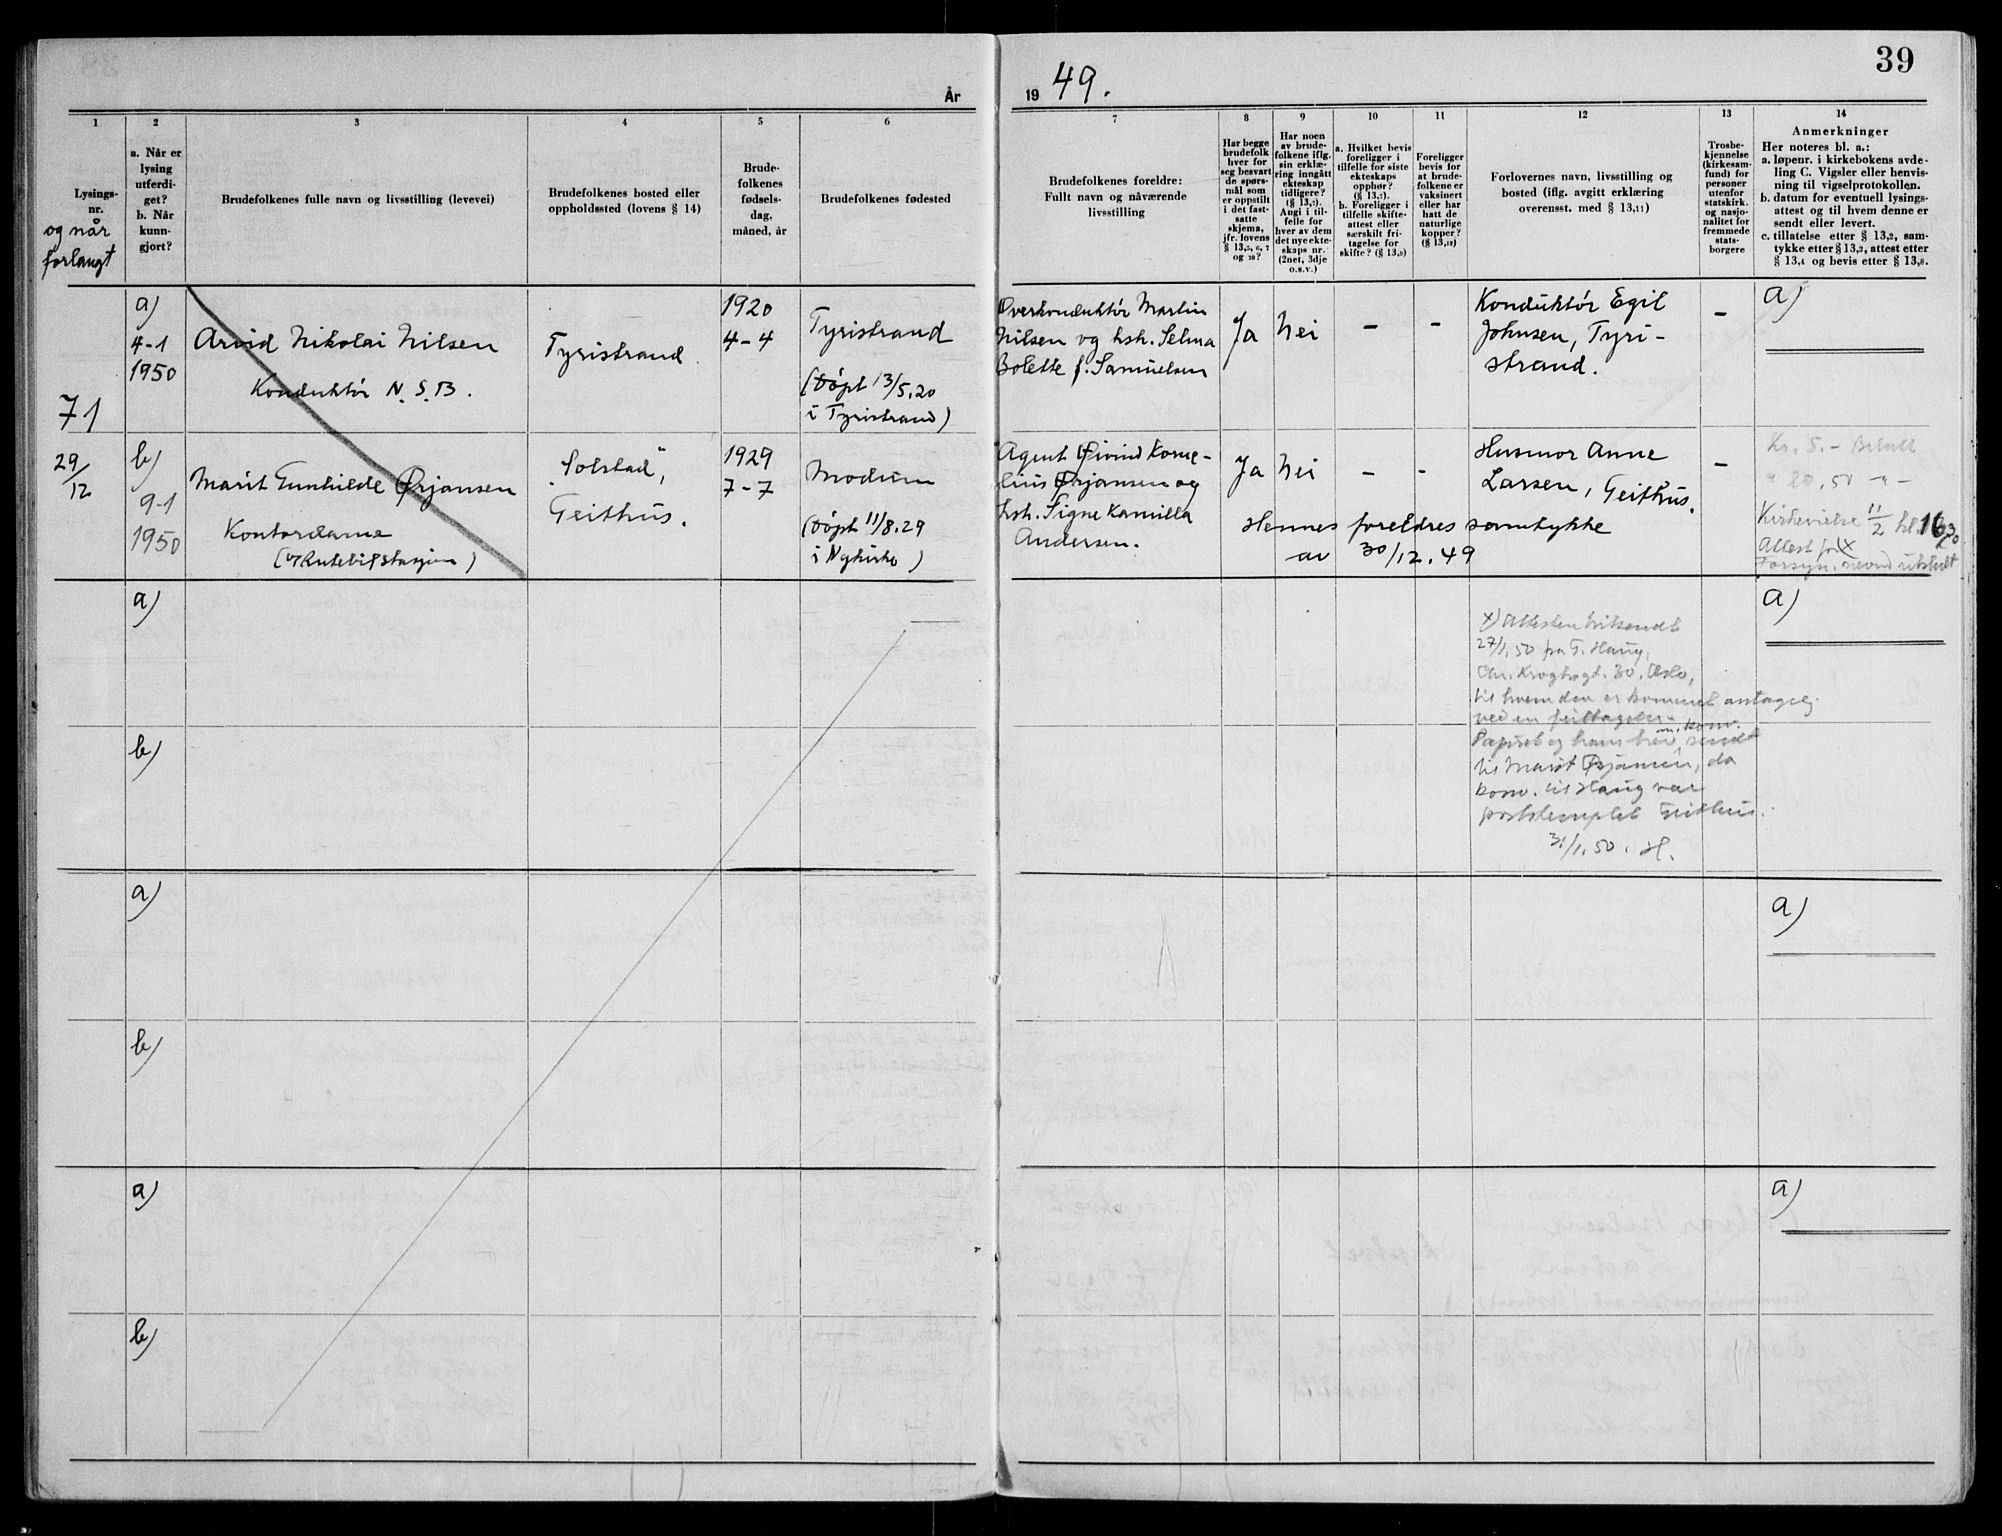 39
År 19 49.
1
Lysings-
nr.
og når
forlangt
2
a. Når er
lysing
utferdi-
get?
b. Når
kunn-
gjort?
3
Brudefolkenes fulle navn og livsstilling (levevei)
4
Brudefolkenes bosted eller
oppholdssted (lovens § 14)
5
Brude-
folkenes
fødsels-
dag,
måned, år
6
Brudefolkenes fødested
7
Brudefolkenes foreldre:
Fullt navn og nåværende
livsstilling
8
Har begge
brudefolk
hver for
seg besvart
de spørs-
mål som
er oppstilt
i det fast-
satte
skjema,
jfr. lovens
§ 13,5, 6, 7
og 10?
9
Har noen
av brude-
folkene iflg.
sin erklæ-
ring inngått
ekteskap
tidligere?
(§ 13,7).
Angi i til-
felle for
hver av dem
det nye ekte-
skaps nr.
(2net, 3dje
o.s.v.)
10
a. Hvilket bevis
foreligger i
tilfelle for siste
ekteskaps
opphør?
(§ 13,7).
b. Foreligger i
tilfelle skifte-
attest eller
særskilt fri-
tagelse for
skifte? (§ 13,8)
11
Foreligger
bevis for
at brude-
folkene er
vaksinert
eller har
hatt de
naturlige
kopper?
(§ 13,12)
12
Forlovernes navn, livsstilling og
bosted (iflg. avgitt erklæring
overensst. med § 13,11)
13
Trosbe-
kjennelse
(kirkesam-
fund) for
personer
utenfor
statskirk.
og nasjo-
nalitet for
fremmede
stats-
borgere
14
Anmerkninger
Her noteres bl. a.:
a. løpenr. i kirkebokens avde-
ling C. Vigsler eller henvis-
ning til vigselprotokollen.
b. datum for eventuell lysings-
attest og til hvem denne er
sendt eller levert.
c. tillatelse etter § 13,2, sam-
tykke etter § 13,3, attest etter
§ 13,4 og bevis etter § 13,8.
71
29/12
a)
4-1
1950
Arvid Nikolai Nilsen
Konduktör N.S.B.
Tyristrand.
1920
4-4
Tyristrand
(døpt 13/5.20
i Tyristrand)
Overkonduktör Martin
Nilsen og hsh. Selma
Bolette f. Samuelsen
Ja
Nei
-
-
Konduktör Egil
Johnsen, Tyri-
strand.
-
a)
b)
9-1
1950
Marit Gunhilde Ørjansen
Kontordame
(v/Rutebilstasjon)
"Solstad",
Geithus.
1929
7-7
Modum
(døpt 11/8.29
i Nykirke)
Agent Øivind Korne-
lius Ørjansen og
hsh. Signe Kamilla
Andersen.
Ja
Nei
-
-
Husmor Anne
Larsen, Geithus.
-
Hennes foreldres samtykke
av 30/12.49
Kr. 5.- Betalt
" 20,50 -"-
Kirkevielse 11/2 kl. 16 30
Attest for x)
Forsyn. nevnd utstedt
a)
a)
x) Attesten tilsendt
27/1.50 fra T. Haug,
Chr. Kroghsgt. 30, Oslo,
til hvem den er kommet antagelig
ved en feiltagelse.
Papiret og hans brev m. konv. sendt
til Marit Ørjansen, da
konv. til Haug var
poststemplet Geithus.
31/1.50. H.
b)
a)
a)
b)
a)
a)
b)